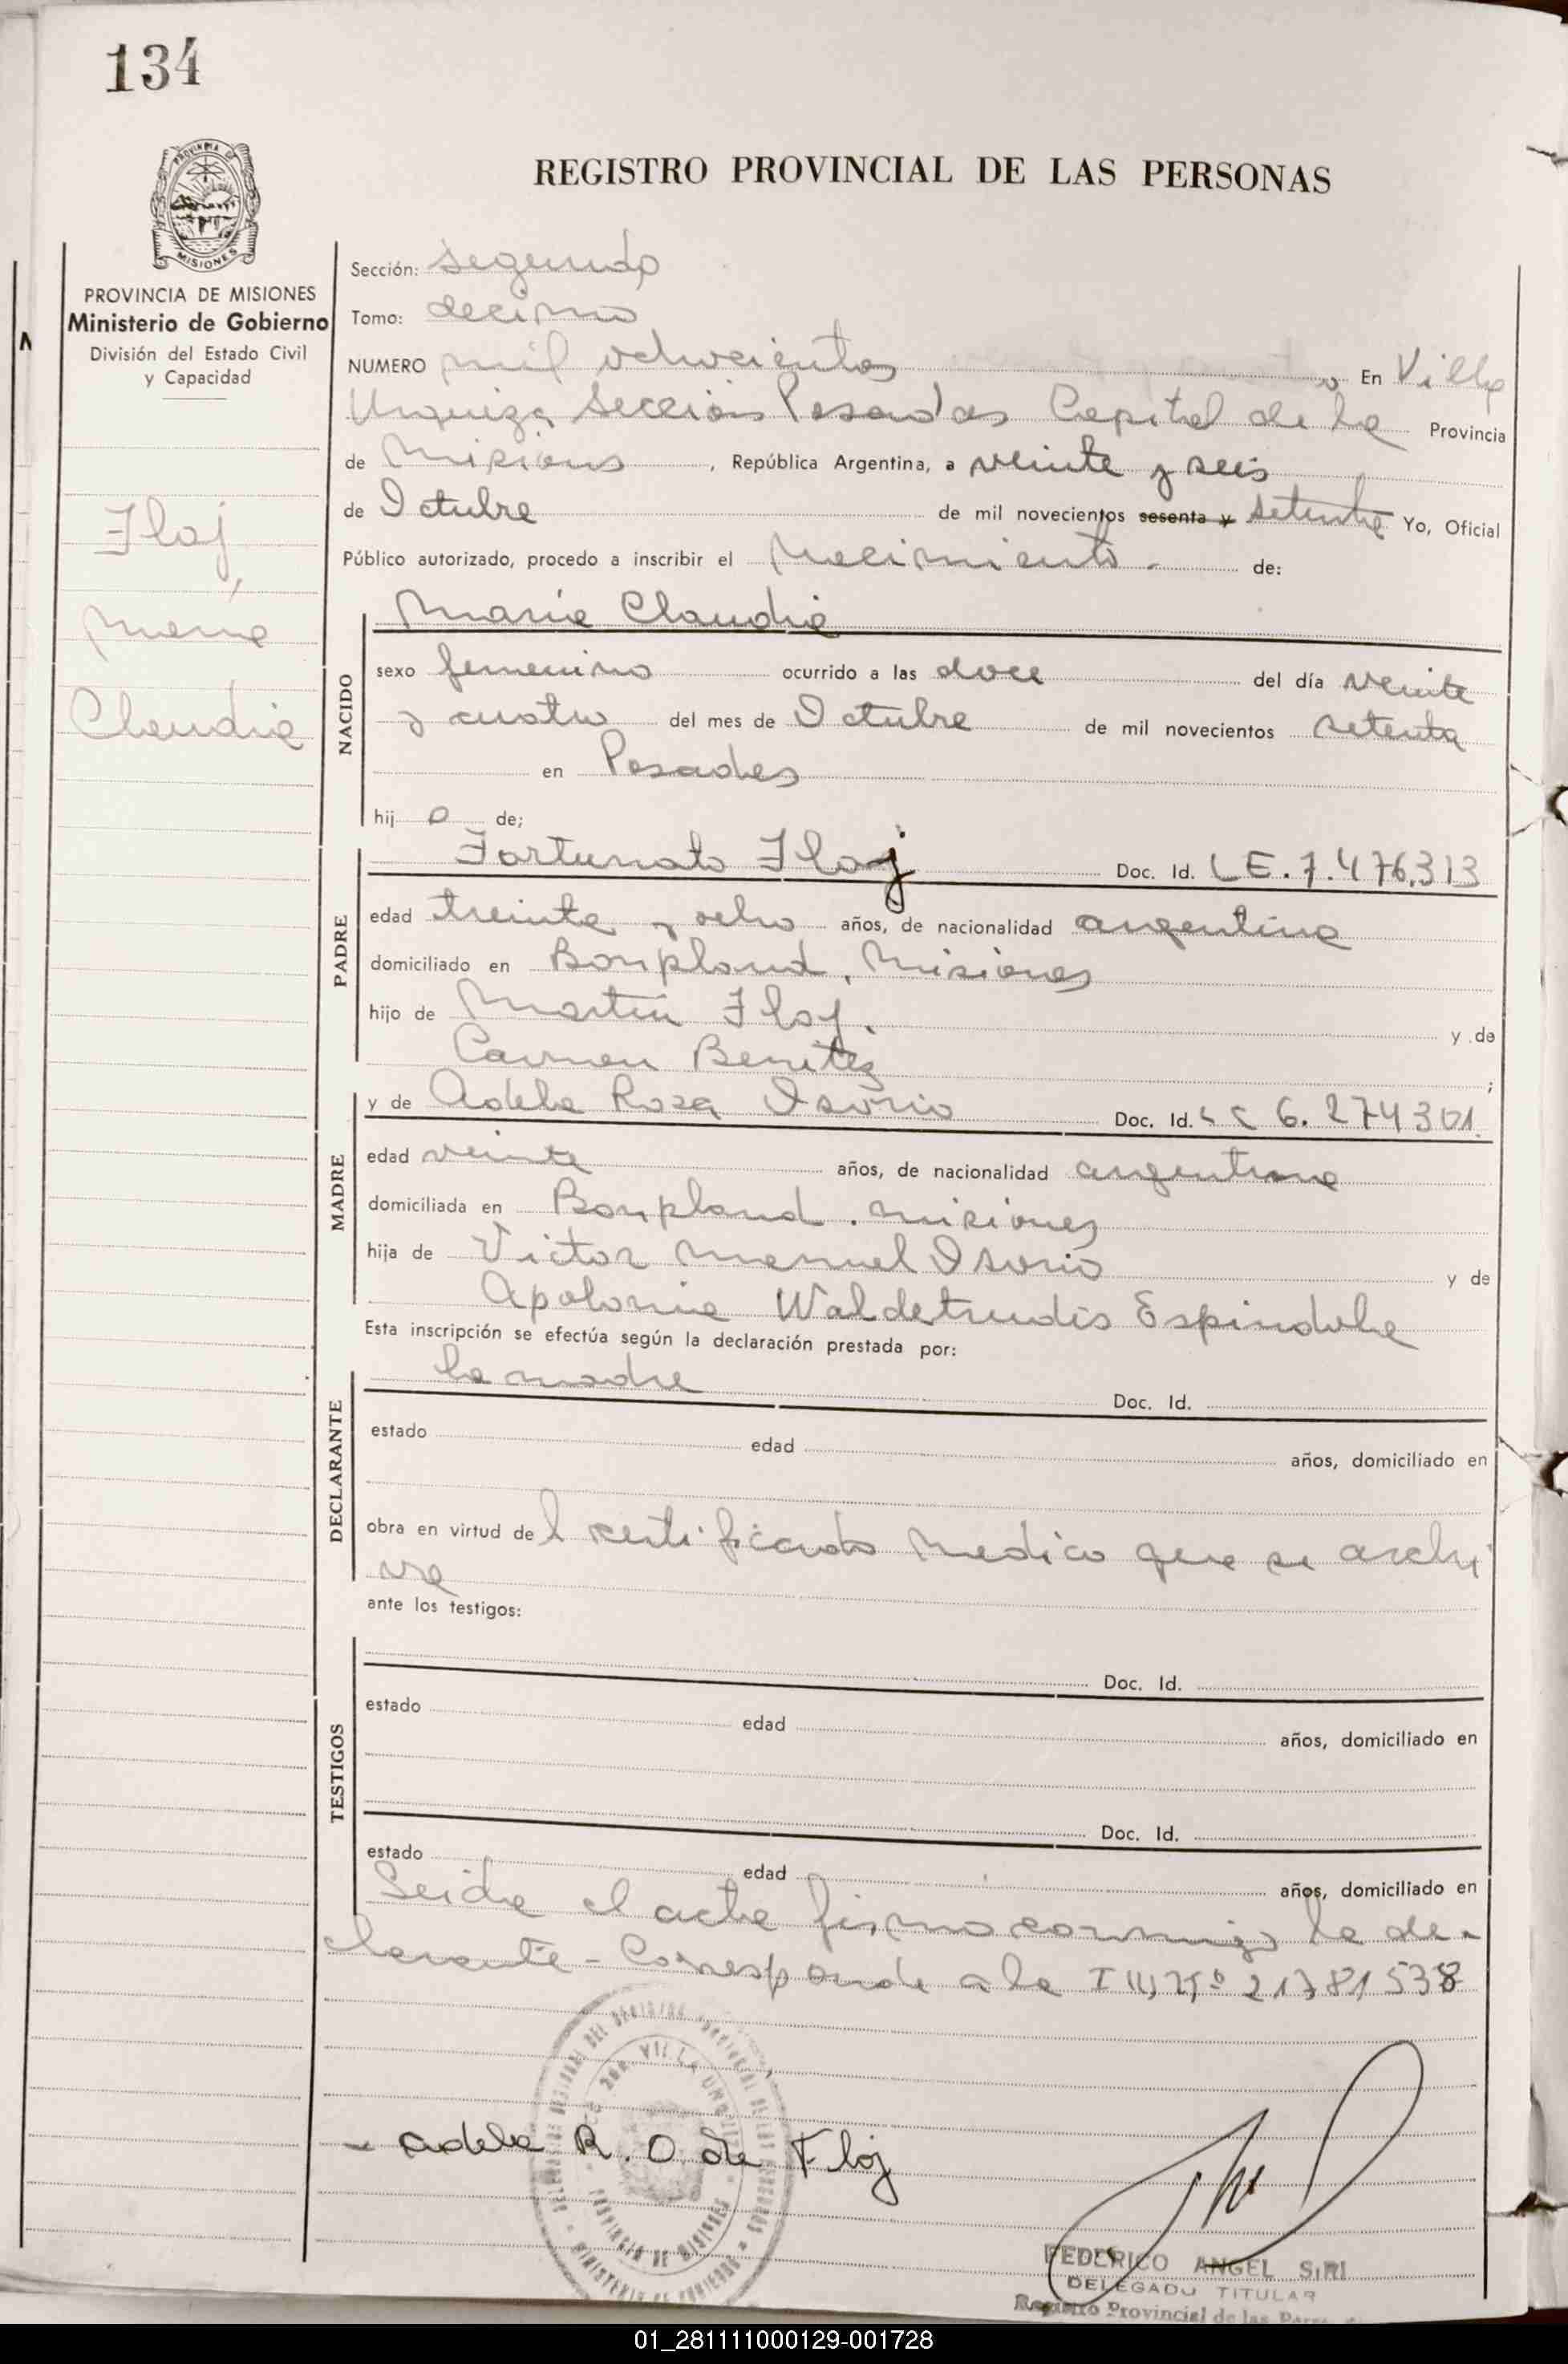 134
PROVINCIA DE
MISIONES
REGISTRO PROVINCIAL DE LAS PERSONAS
PROVINCIA DE MISIONES
Ministerio de Gobierno
División del Estado Civil
y Capacidad
Floj,
María
Claudia
Sección: segundo
Tomo: decimo
NUMERO mil ochocientos En Villa
Urquiza Sección Posadas Capital de la Provincia
de Misiones, República Argentina, a veinte y seis
de Octubre de mil novecientos sesenta y setenta Yo, Oficial
Público autorizado, procedo a inscribir el Nacimiento.- de:
NACIDO
María Claudia
sexo femenino ocurrido a las doce del día veinte
y cuatro del mes de Octubre de mil novecientos setenta
en Posadas
hij a de;
PADRE
Fortunato Floj Doc. Id. LE. 7.476.313
edad treinta y ocho años, de nacionalidad argentina
domiciliado en Bonpland, Misiones
hijo de Martín Floj. y de
Carmen Benitez ;
MADRE
y de Adela Rosa Osorio Doc. Id. LC 6.274301
edad veinte años, de nacionalidad argentina
domiciliada en Bonpland. misiones
hija de Victor Manuel Osorio y de
Apolonia Waldetrudis Espindola
Esta inscripción se efectúa según la declaración prestada por:
DECLARANTE
la madre Doc. Id.
estado edad años, domiciliado en
obra en virtud del certificado medico que se archi
va
ante los testigos:
TESTIGOS
Doc. Id.
estado edad años, domiciliado en
Doc. Id.
estado edad años, domiciliado en
Leida el acta firma conmigo la de-
clarante - Corresponde a la Nº 21781538
Adela R. O. de Floj
VILLA URQUIZA
PROVINCIA DE MISIONES
FEDERICO ANGEL SIRI
DELEGADO TITULAR
Registro Provincial de las
01_281111000129-001728